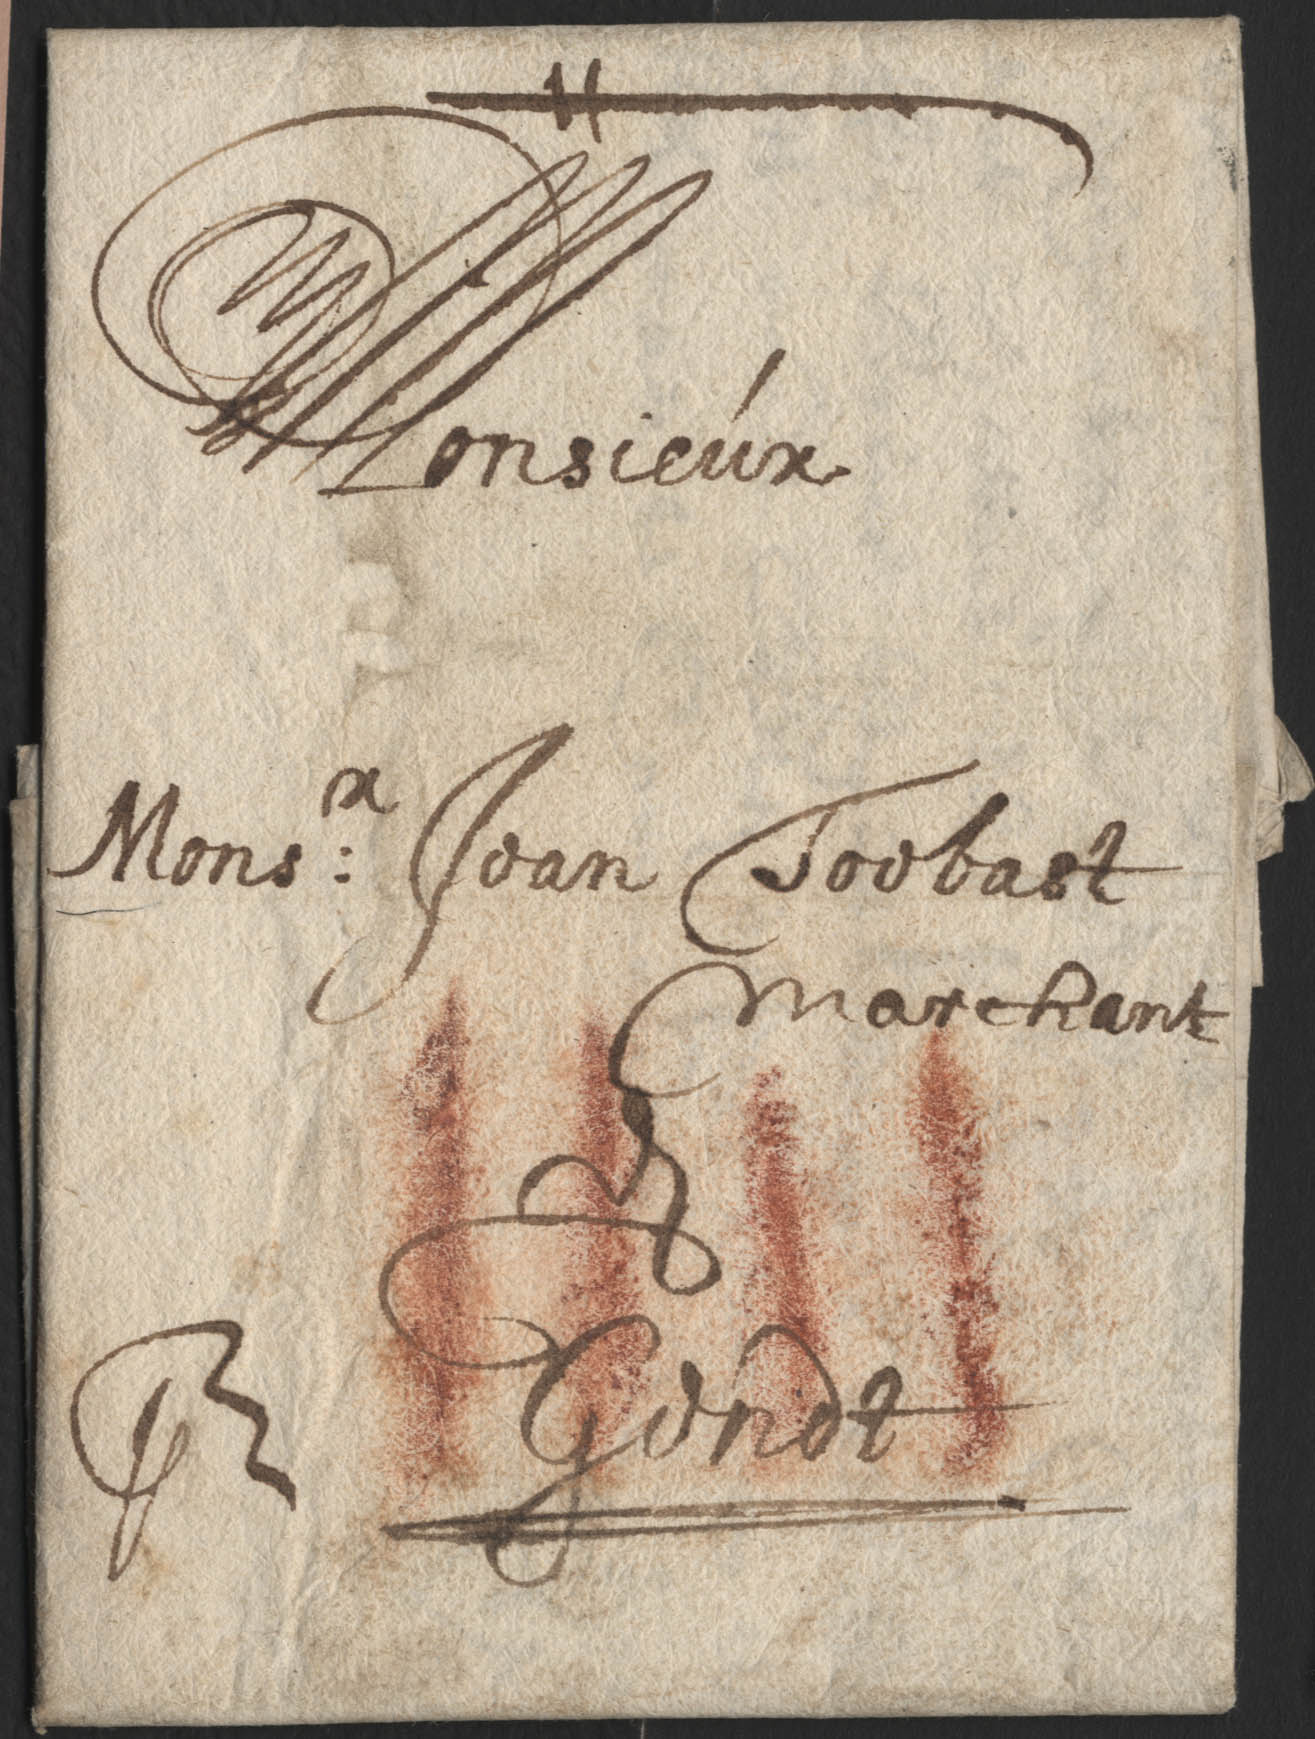 Monsieur
Mons:r Joan Toobast
Marchant
Gendt